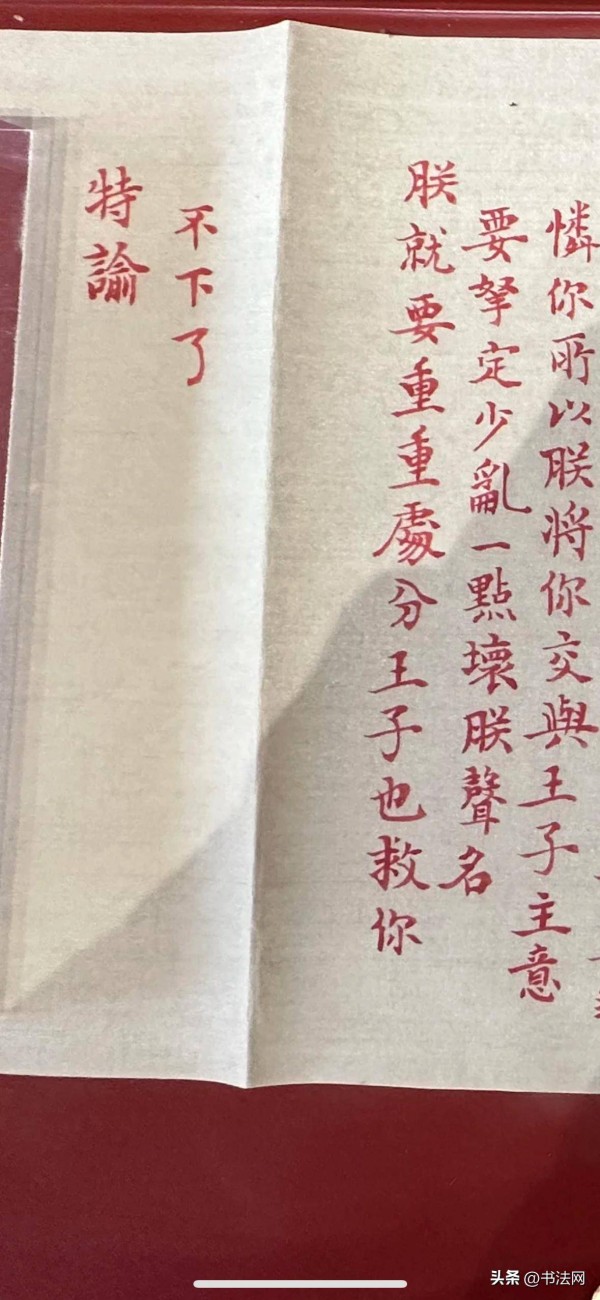 憐你所以朕將你交與王子主意
要拏定少亂一點壞朕聲名
朕就要重重處分王子也救你
不下了
特諭
头条 @书法网